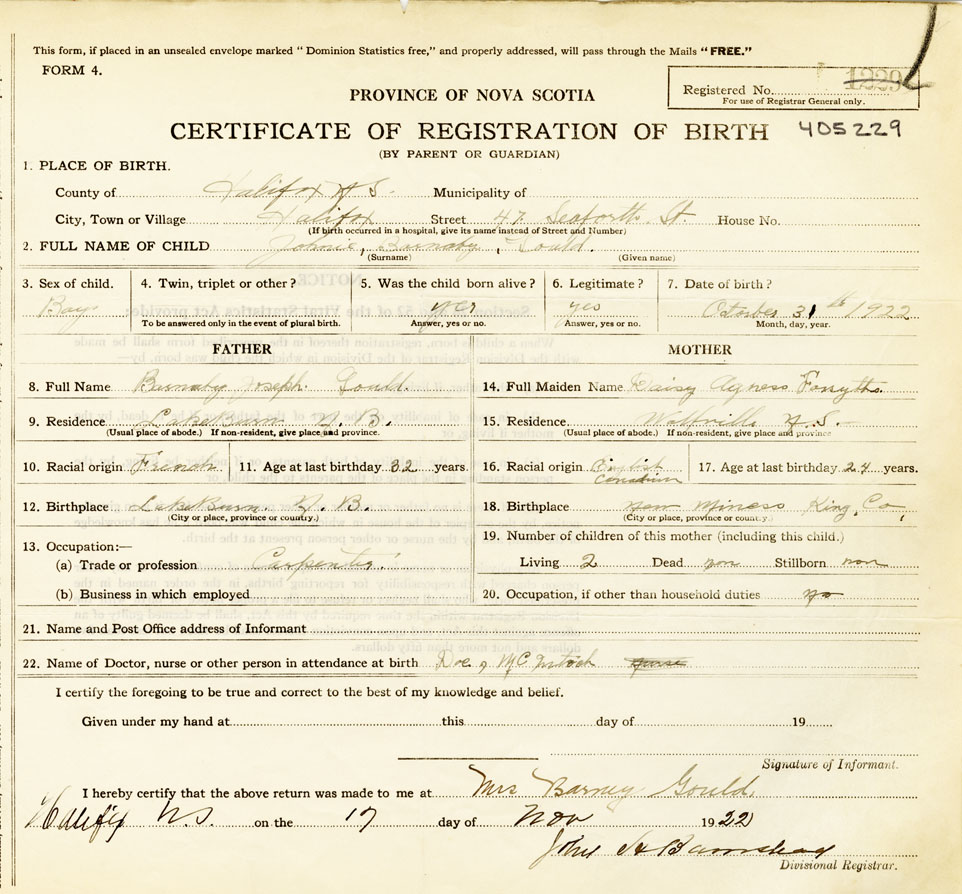 This form, if placed in an unsealed envelope marked "Dominion Statistics free," and properly addressed, will pass through the Mails "FREE."
FORM 4.
Registered No. 12292
For use of Registrar General only.
PROVINCE OF NOVA SCOTIA
CERTIFICATE OF REGISTRATION OF BIRTH 405229
(BY PARENT OR GUARDIAN)
1. PLACE OF BIRTH.
County of Halifax N S. Municipality of
City, Town or Village Halifax Street 47 Seaforth St House No.
(If birth occurred in a hospital, give its name instead of Street and Number)
2. FULL NAME OF CHILD Johnie, Barnaby, Gould.
(Surname) (Given name)
3. Sex of child. 4. Twin, triplet or other? 5. Was the child born alive? 6. Legitimate? 7. Date of birth?
Boy yes yes October 31 th 1922
To be answered only in the event of plural birth. Answer, yes or no. Answer, yes or no. Month, day, year.
FATHER MOTHER
8. Full Name Barnaby Joseph Gould 14. Full Maiden Name Daisy Agness Forsythe
9. Residence LakeBurn N. B. 15. Residence Wolfville N. S.
(Usual place of abode.) If non-resident, give place and province. (Usual place of abode.) If non-resident, give place and province
10. Racial origin French 11. Age at last birthday 32 years. 16. Racial origin English Canadian 17. Age at last birthday 24 years.
12. Birthplace LakeBurn N. B. 18. Birthplace New Miness King, Co,
(City or place, province or country.) (City or place, province or country.)
13. Occupation:— 19. Number of children of this mother (including this child.)
(a) Trade or profession Carpenter. Living 2 Dead non Stillborn non
(b) Business in which employed 20. Occupation, if other than household duties no
21. Name and Post Office address of Informant
22. Name of Doctor, nurse or other person in attendance at birth McIntosh nurse
I certify the foregoing to be true and correct to the best of my knowledge and belief.
Given under my hand at this day of 19
Signature of Informant.
I hereby certify that the above return was made to me at Mrs Barney Gould,
Halifax N.S. on the 17 day of Nov 1922
John A Barnstead
Divisional Registrar.